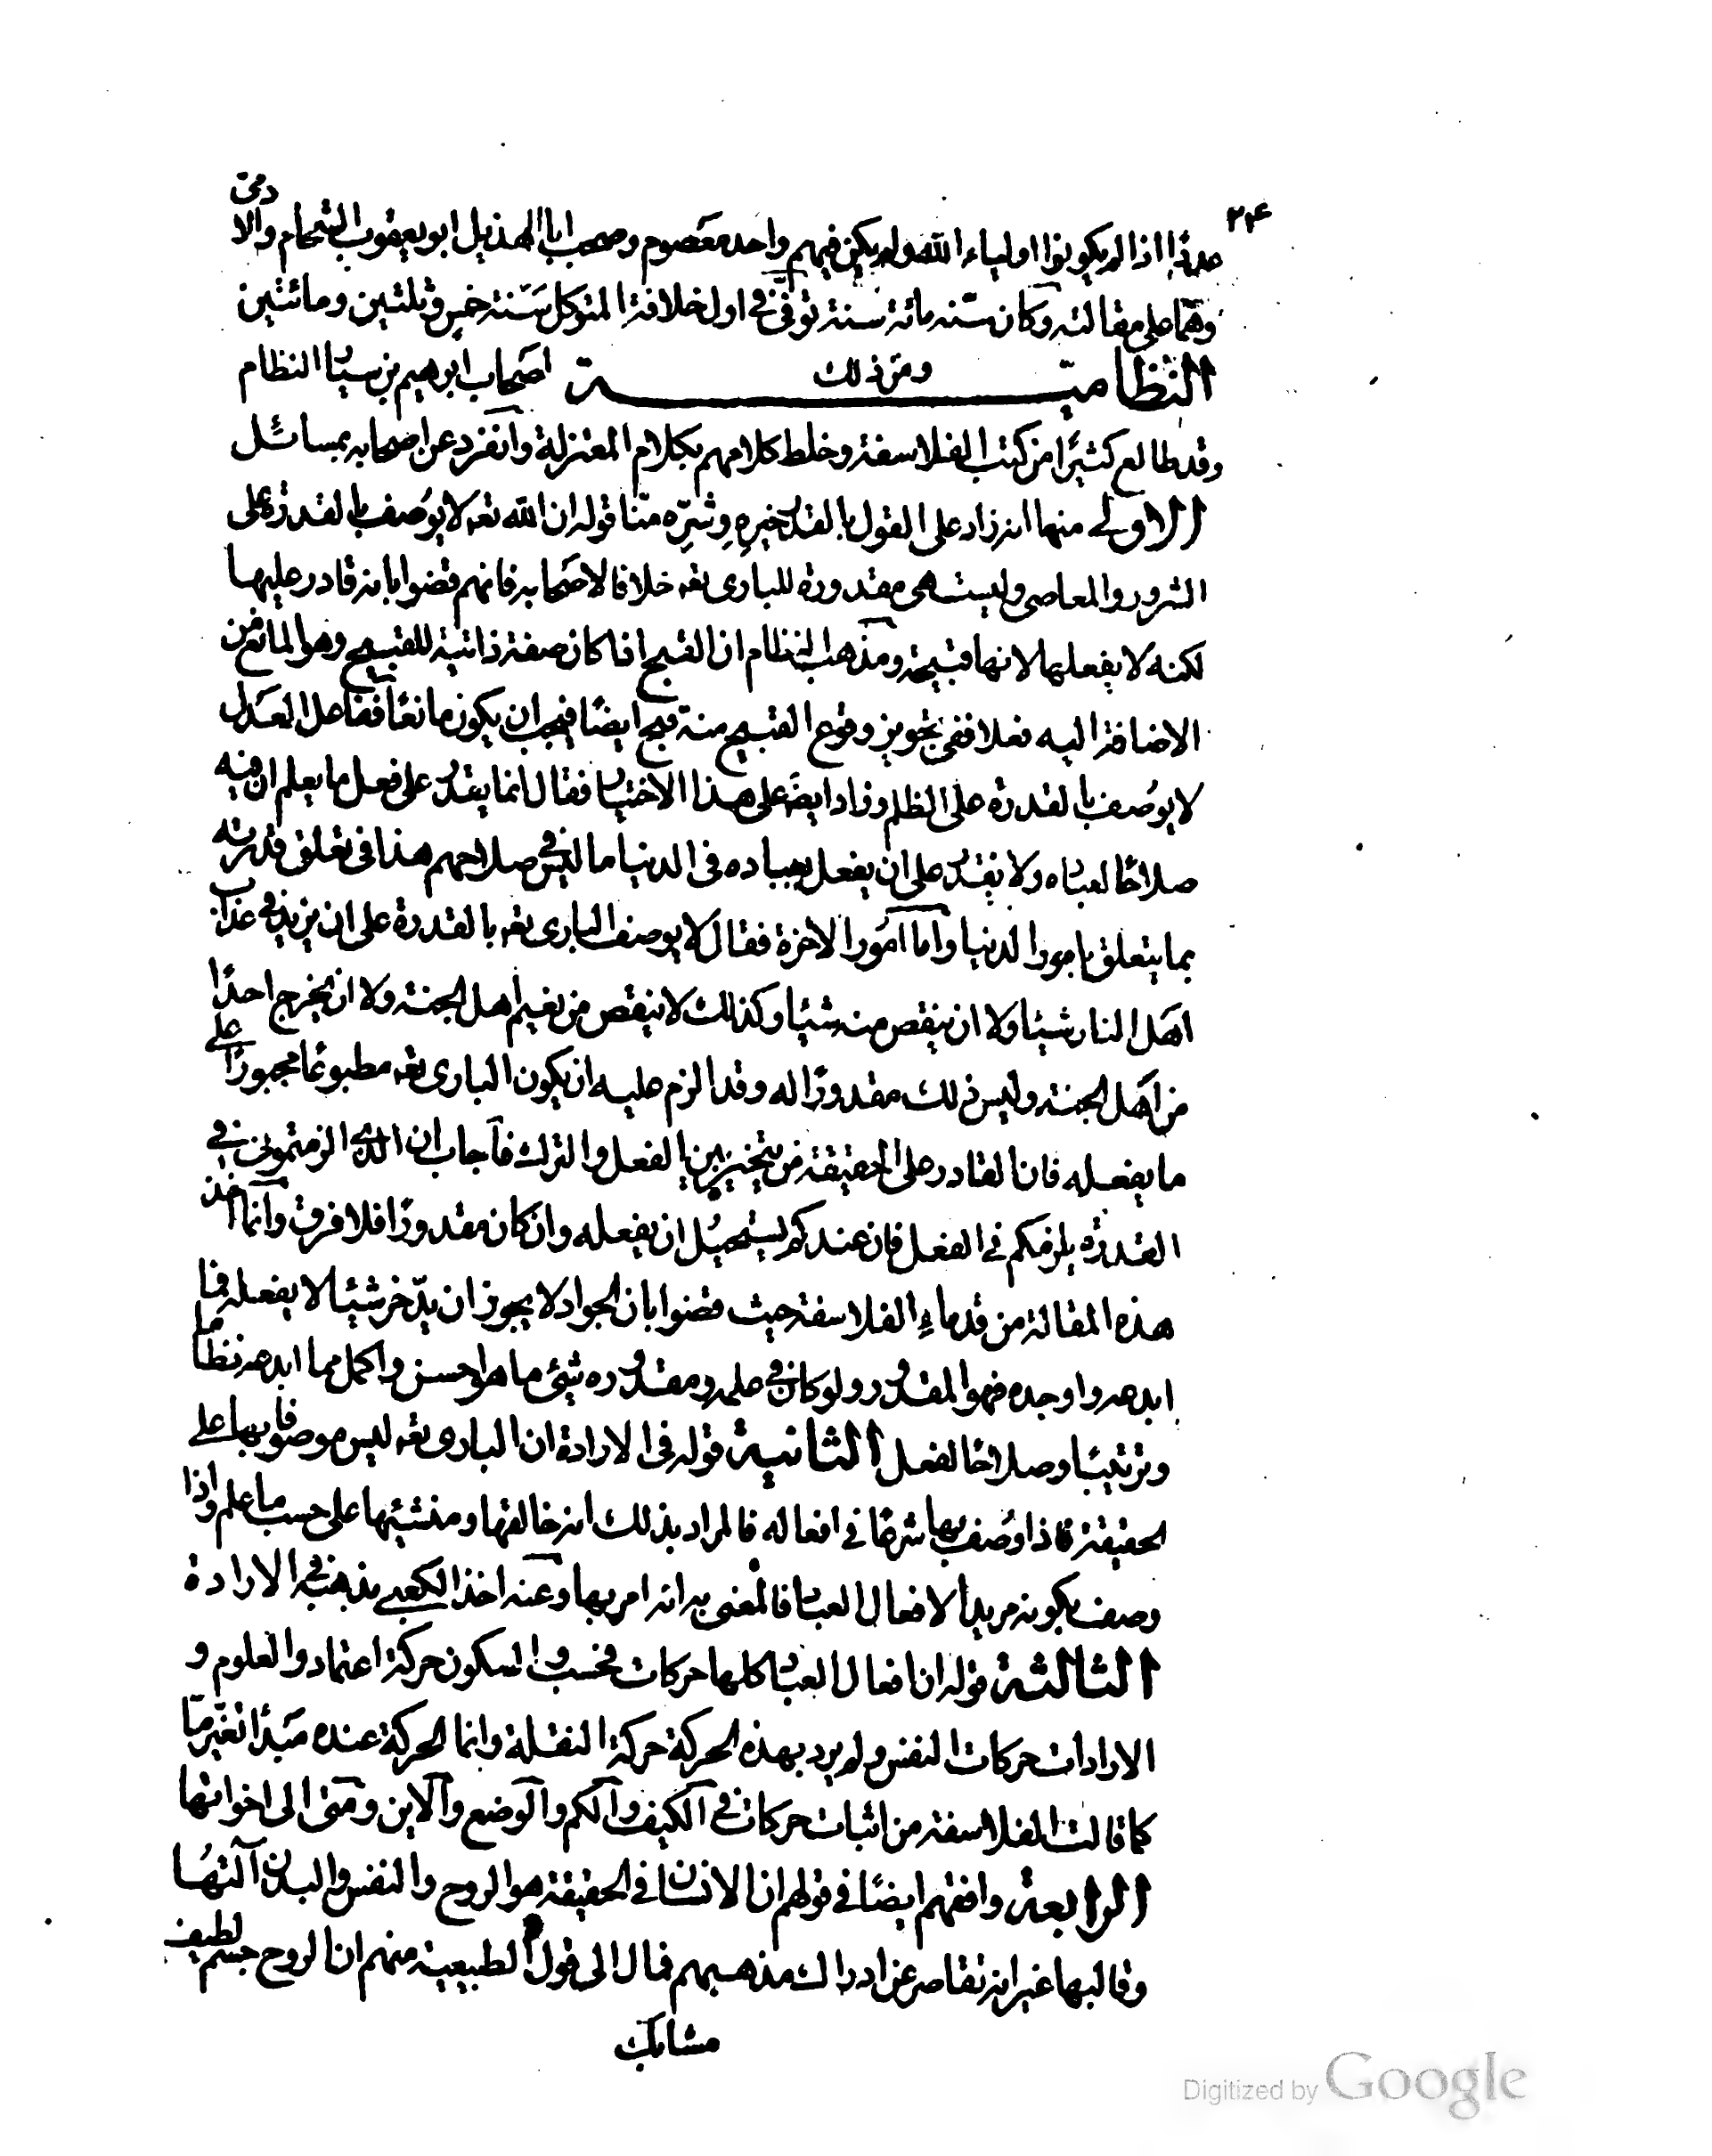 ٢٤
عددًا اذا لم يكونوا اولياء الله ولم يكن فيهم واحد معصوم وصحب ابا الهذيل ابو يعقوب الشحام والادمى
وهما على مقالته وكان سنه مائة سنة توفى فى اول خلافة المتوكل سنة خمس وثلثين ومائتين
النظامية ومن ذلك اصحاب ابرهيم بن سيار النظام
وقد طالع كثيرًا من كتب الفلاسفة وخلط كلامهم بكلام المعتزلة وانفرد عن اصحابه بمسائل
الاولى منها انه زاد على القول بالقدر خيره وشره منا قوله ان الله تعه لا يوصف بالقدرة على
الشرور والمعاصى وليست هى مقدورة للبارى تعه خلافا لاصحابه فانهم قضوا بانه قادر عليها
لكنه لا يفعلها لانها قبيحة ومذهب النظام ان القبح اذا كان صفة ذاتية للقبيح وهو المانع من
الاضافة اليه فعلا ففى تجويز وقوع القبيح منه قبح ايضًا فيجب ان يكون مانعًا ففاعل العدل
لا يوصف بالقدرة على الظلم وزاد ايضَ على هذا الاختيار فقال انما يقدر على فعل ما يعلم ان فيه
صلاحًا لعباده ولا يقدر على ان يفعل بعباده فى الدنيا ما ليس فى صلاحهم هذا فى تعلق قدرته
بما يتعلق بامور الدنيا واما امور الاخرة فقال لا يوصف البارى تعه بالقدرة على ان يزيد فى عذاب
اهل النار شيئا ولا ان ينقص منه شيئا وكذلك لا ينقص من نعيم اهل الجنة ولا ان يخرج احدًا
من اهل الجنة وليس ذلك مقدورًا له وقد الزم عليه ان يكون البارى تعه مطبوعًا مجبورًا على
ما يفعله فان القادر على الحقيقة من يتخير بين الفعل والترك فاجاب ان الذى الزمتمونى فى
القدرة يلزمكم فى الفعل فان عندكم يستحيل ان يفعله وان كان مقدورًا فلا فرق وانما اخذ
هذه المقالة من قدماء الفلاسفة حيث قضوا بان الجواد لا يجوز ان يدّخر شيئا لا يفعله فما
ابدعه واوجده فهو المقدور ولو كان فى علمه ومقدوره شئ ما هو احسن واكمل مما ابدعه نظاما
وترتيبًا وصلاحًا لفعل الثانية قوله فى الارادة ان البارى تعه ليس موصوفا بها على
الحقيقة فاذا وُصف بها شرعًا فى افعاله فالمراد بذلك انه خالقها ومنشئها على حسب ما علم واذا
وصف بكونه مريدا لافعال العباد فالمعنى به انه امر بها وعنه اخذ الكعبى مذهبه فى الارادة
الثالثة قوله ان افعال العباد كلها حركات فحسب والسكون حركة اعتماد والعلوم و
الارادات حركات النفس ولم يرد بهذه الحركة حركة النقلة وانما الحركة عنده مبدأ تغيّر ما
كما قالت الفلاسفة من اثبات حركات فى الكيف والكم والوضع والاين ومتى الى اخواتها
الرابعة وافقهم ايضًا فى قولهم ان الانسان فى الحقيقة هو الروح والنفس والبدن آلتهُا
وقالبها غير انه تقاصر عن ادراك مذهبهم فمال الى قول الطبيعية منهم ان الروح جسم لطيف
مشابك
Digitized by Google